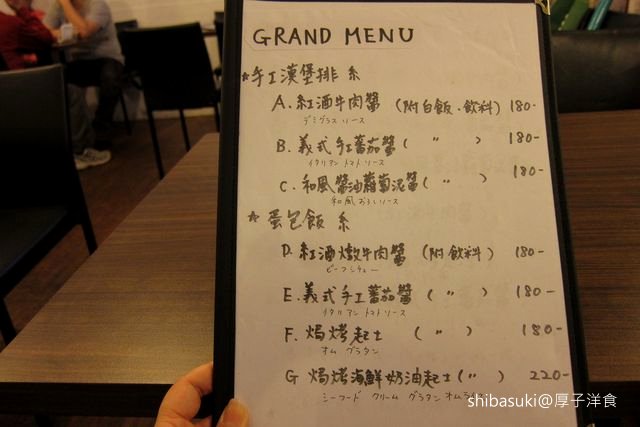 GRAND MENU
★手工漢堡排 系
A. 紅酒牛肉醬 (附白飯·飲料) 180-
デミグラス ソース
B. 義式手工蕃茄醬 ( 〃 ) 180-
イタリアン トマト ソース
C. 和風醬油蘿蔔泥醬 ( 〃 ) 180-
和風 おろしソース
★ 蛋包飯 系
D. 紅酒燉牛肉醬 (附飲料) 180-
ビーフシチュー
E. 義式手工蕃茄醬 ( 〃 ) 180-
イタリアン トマト ソース
F. 焗烤起士 ( 〃 ) 180-
オム グラタン
G 焗烤海鮮奶油起士 ( 〃 ) 220-
シーフード クリーム グラタン オム
shibasuki@厚子洋食